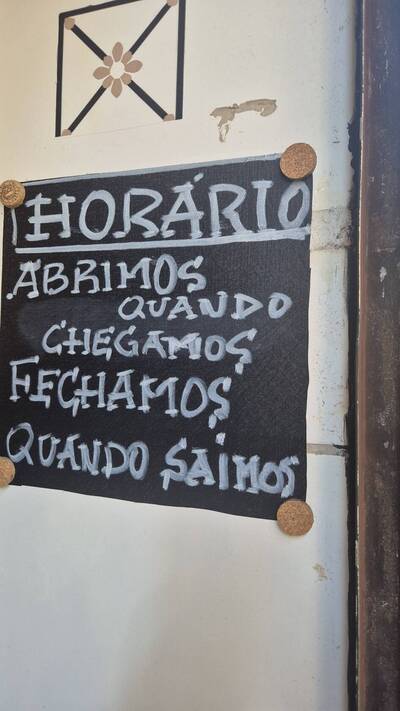 HORÁRIO
ABRIMOS
QUANDO
CHEGAMOS
FECHAMOS
QUANDO SAÍMOS